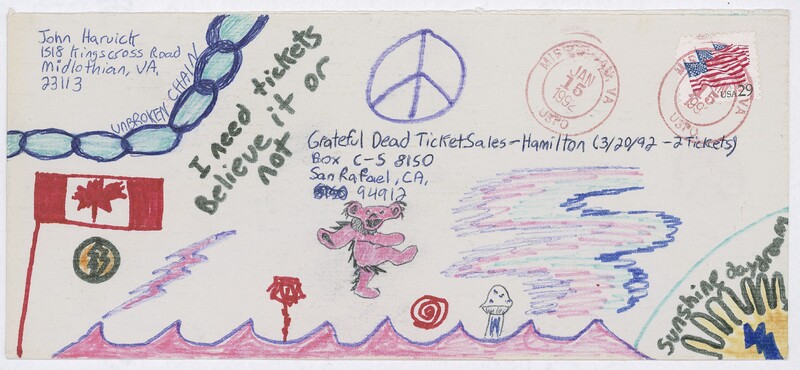 John Harvick
1518 Kingscross Road
Midlothian, VA,
23113
UNBROKEN CHAIN
I need tickets
Believe it or
not
JAN
15
1992
USPO
USA 29
Grateful Dead Ticket Sales - Hamilton (3/20/92 - 2 Tickets)
Box C-S 8150
San Rafael, CA,
94912
Sunshine daydream